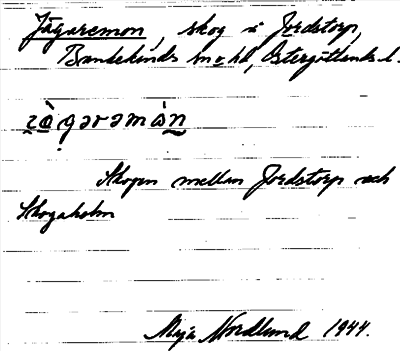 Jägaremon, skog i Jordstorp,
Bankekinds sn o hd, Östergötlands l.
Skogen mellan Jordstorp och
Skogaholm
Maja Nordlund 1944.